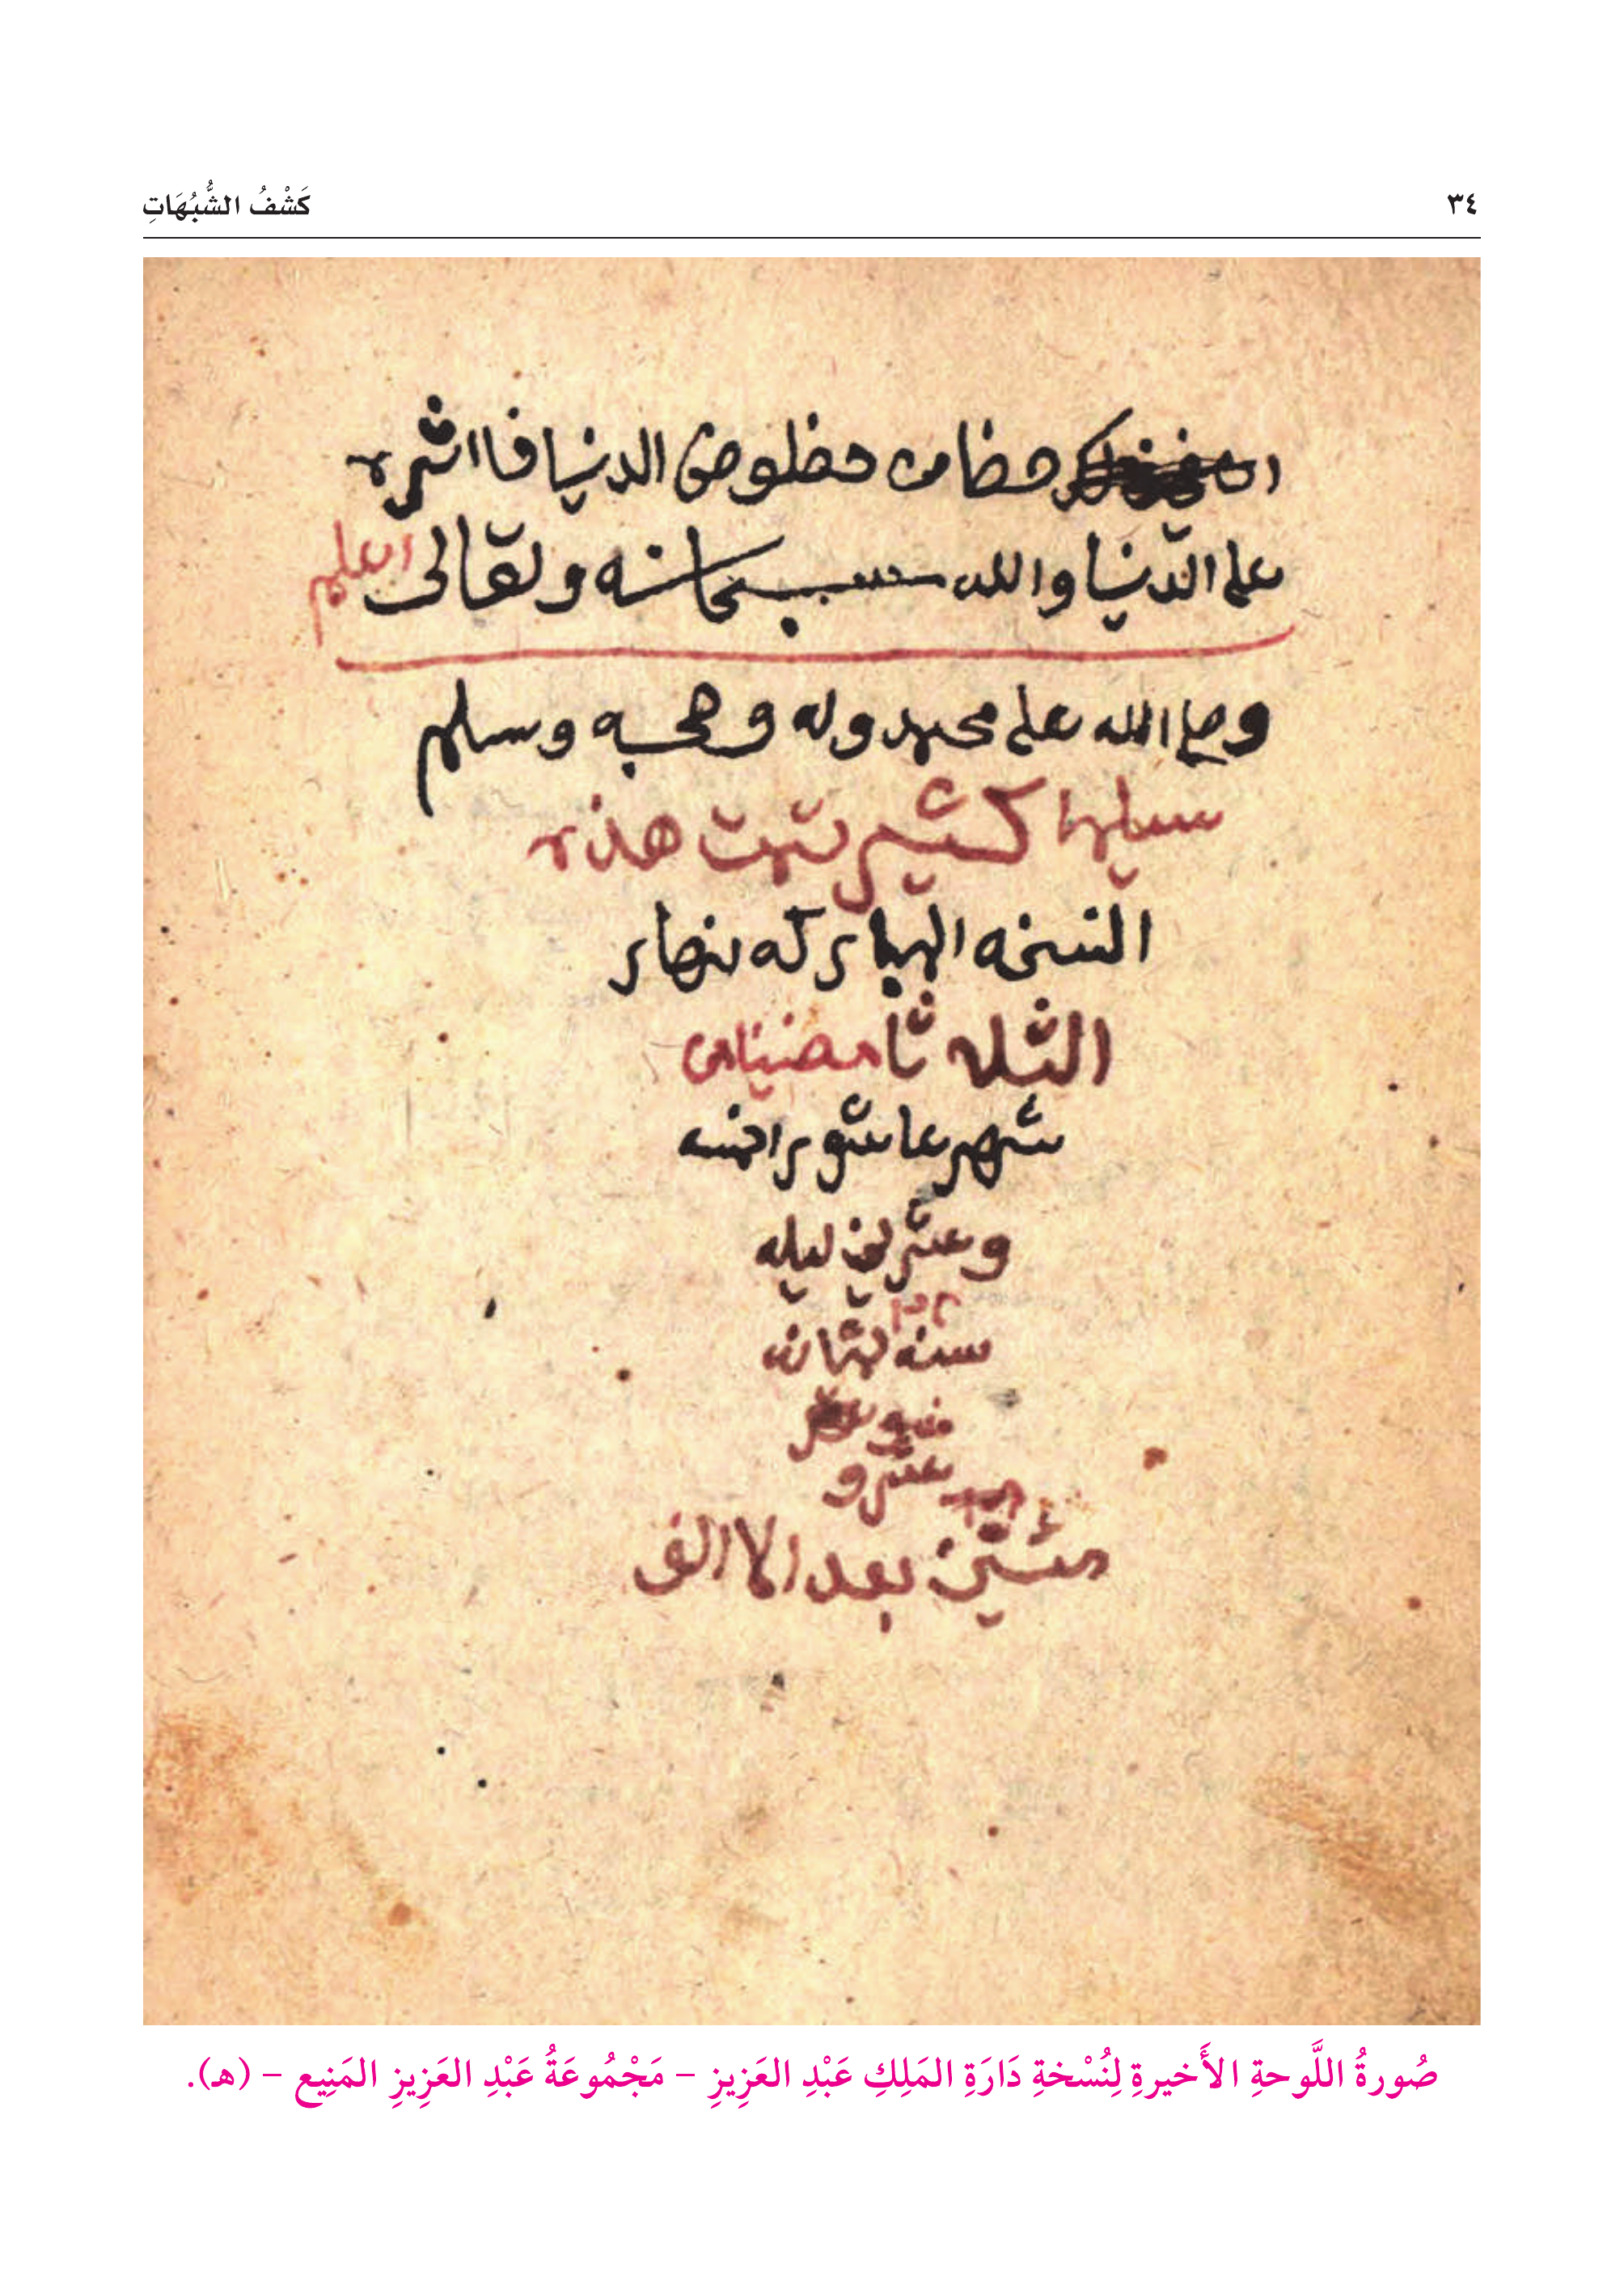 ٣٤
كَشْفُ الشُّبُهَاتِ
حضا من حظلوض الدنيا فااثره
على الدنيا والله سبحانه وتعالى اعلم
وصلى الله على محمد وله وصحبه وسلم
سليما كثير تمت هذه
النسخه المباركه بنهار
الثلاثا مضيا من
شهر عاشورا خمسه
وعشرين ليله
سنه ثمان
عشر و
مئتين بعد الاالف
صُورةُ اللَّوحةِ الأَخيرةِ لِنُسْخةِ دَارَةِ المَلِكِ عَبْدِ العَزِيزِ – مَجْمُوعَةُ عَبْدِ العَزِيزِ المَنِيع – (هـ).